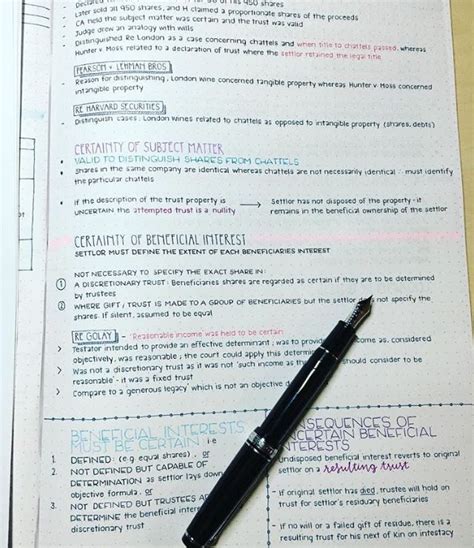 of his 450 shares
Later sold all 950 shares, and H claimed a proportionate shares of the proceeds
CA held the subject matter was certain and the trust was valid
Judge drew an analogy with wills
Distinguished Re London as a case concerning chattels and when title to chattels passed, whereas
Hunter v. Moss related to a declaration of trust where the settlor retained the legal title
PEARSON v LEHMAN BROS
Reason for distinguishing: London Wine concerned tangible property whereas Hunter v Moss concerned
intangible property
RE HARVARD SECURITIES
Distinguish cases: London Wines related to chattels as opposed to intangible property (shares, debts)
CERTAINTY OF SUBJECT MATTER
• VALID TO DISTINGUISH SHARES FROM CHATTELS
• shares in the same company are identical whereas chattels are not necessarily identical ∴ must identify
the particular chattels
• If the description of the trust property is
UNCERTAIN the attempted trust is a nullity
→ Settlor has not disposed of the property - it
remains in the beneficial ownership of the settlor
CERTAINTY OF BENEFICIAL INTEREST
SETTLOR MUST DEFINE THE EXTENT OF EACH BENEFICIARIES INTEREST
NOT NECESSARY TO SPECIFY THE EXACT SHARE IN:
1 A DISCRETIONARY TRUST: Beneficiaries shares are regarded as certain if they are to be determined
by trustees
2 WHERE GIFT/TRUST IS MADE TO A GROUP OF BENEFICIARIES but the settlor not specify the
shares. If silent, assumed to be equal
RE GOLAY - 'Reasonable income' was held to be certain
> Testator intended to provide an effective determinant; was to provide income as, considered
objectively, was reasonable; the court could apply this determinant
> Was not a discretionary trust as it was not 'such income as should consider to be
reasonable' - it was a fixed trust
> Compare to a 'generous legacy' which is not an objective
BENEFICIAL INTERESTS
MUST BE CERTAIN i.e
1. DEFINED: (e.g. equal shares), or
2. NOT DEFINED BUT CAPABLE OF
DETERMINATION as settlor lays down
objective formula, or
3. NOT DEFINED BUT TRUSTEES
DETERMINE the beneficial
discretionary trust
CONSEQUENCES OF
UNCERTAIN BENEFICIAL
INTERESTS
Undisposed beneficial interest reverts to original
settlor on a resulting trust
- If original settlor has died, trustee will hold on
trust for settlor's residuary beneficiaries
- If no will or a failed gift of residue, there is a
resulting trust for his next of Kin on intestacy